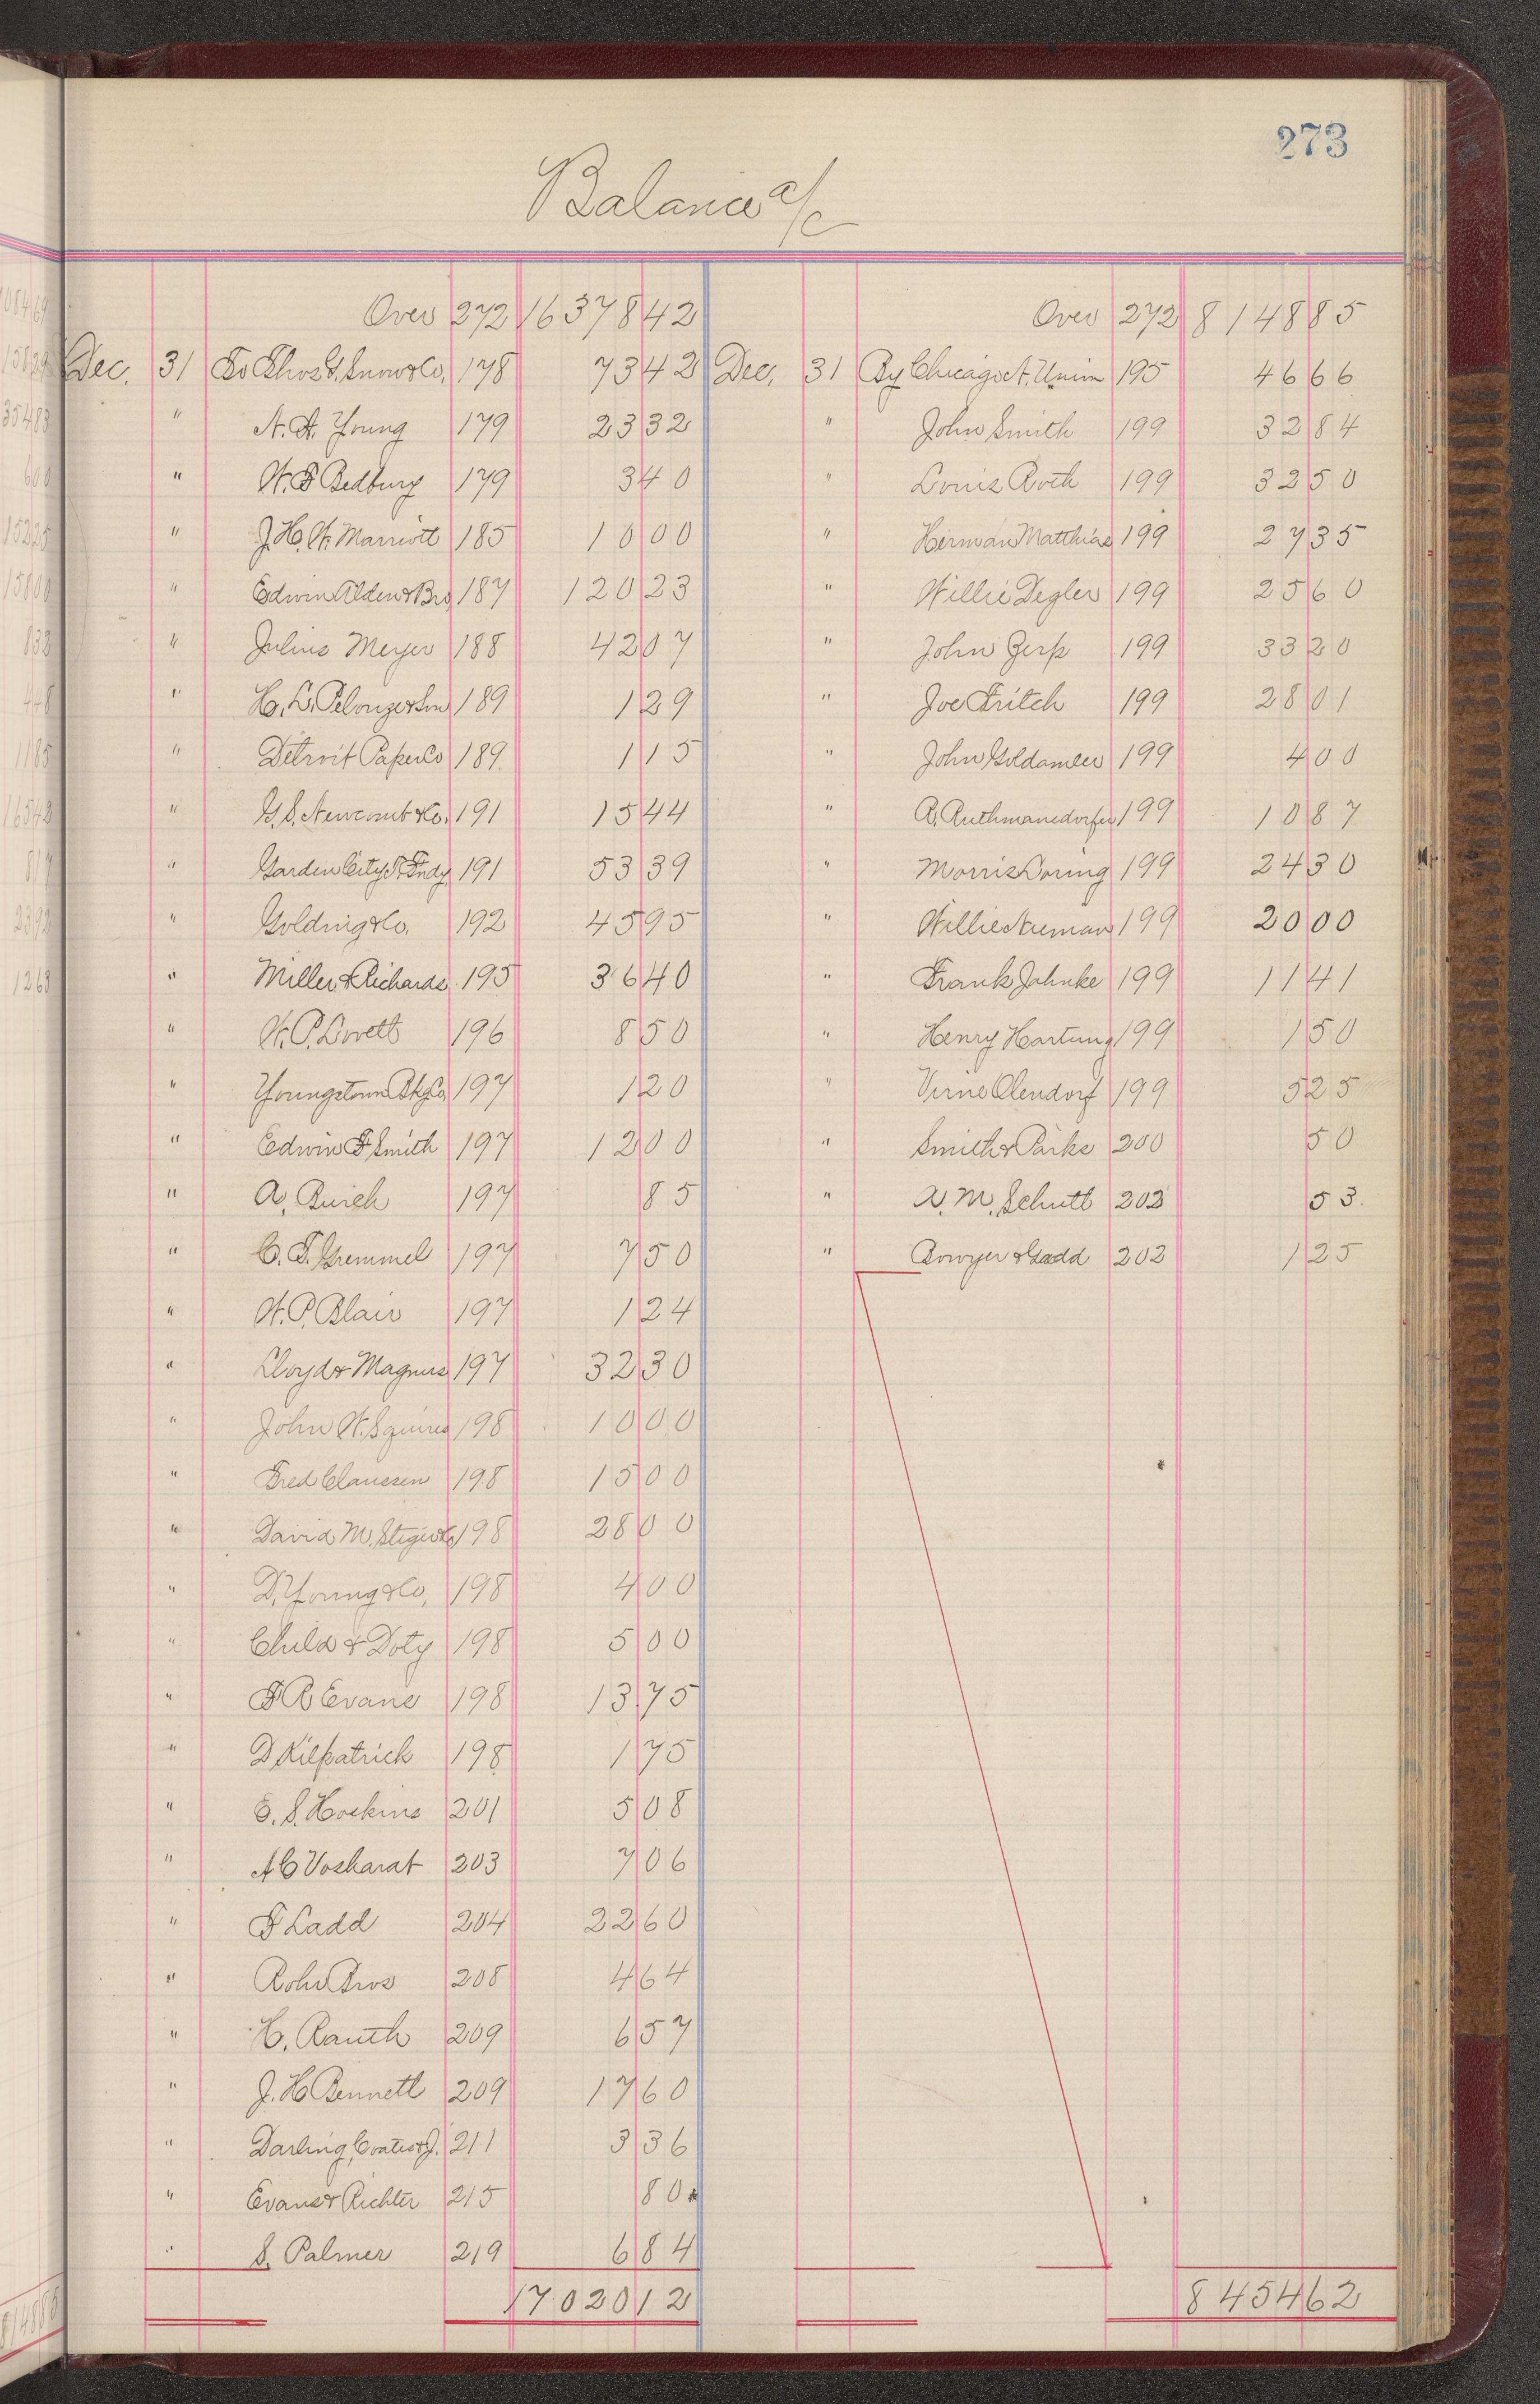 273
Balance a/c
Over 272 16378 42
Dec. 31 To Thos G. Snow & Co. 178 73 42
" N. A. Young 179 23 32
" W. F. Bedbury 179 3 40
" J. H. W. Marriott 185 10 00
" Edwin Alden & Bro 187 120 23
" Julius Meyer 188 42 07
" H. L. Pelouze & Son 189 1 29
" Detroit Paper Co 189 1 15
" G. S. Newcomb & Co. 191 15 44
" Garden City T. Fndy 191 53 39
" Golding & Co. 192 45 95
" Miller & Richards 195 36 40
" W. P. Lovett 196 8 50
" Youngstown Co. 197 1 20
" Edwin F Smith 197 12 00
" A. Burch 197 85
" C. F. Gremmel 197 7 50
" W. P. Blair 197 1 24
" Lloyd & Magnus 197 32 30
" John W. Squires 198 10 00
" Fred Claussen 198 15 00
" David M. & Co 198 28 00
" D. Young & Co, 198 4 00
" Child & Doty 198 5 00
" F R Evans 198 13 75
" D Kilpatrick 198 1 75
" E. S. Hoskins 201 5 08
" A C Vosharat 203 7 06
" F Ladd 204 22 60
" Rohr Bros 208 4 64
" H. Rauth 209 6 57
" J. H Bennett 209 17 60
" Darling, Coates & J. 211 3 36
" Evans & Richter 215 80
" S. Palmer 219 6 84
17020 12
Over 272 8148 85
Dec. 31 By Chicago N. Union 195 46 66
" John Smith 199 32 84
" Louis Roth 199 32 50
" Herman Matthias 199 27 35
" Willie Degler 199 25 60
" John Zerp 199 33 20
" Joe Fritch 199 28 01
" John Goldameer 199 4 00
" A. Ruthmansdorfer 199 10 87
" Morris Loring 199 24 30
" Willie Nieman 199 20 00
" Frank Jahnke 199 11 41
" Henry Hartung 199 1 50
" Virne Olendorf 199 5 25
" Smith & Parks 200 50
" A. M. Schutt 202 53
" Bowyer & Gadd 202 1 25
8454 62